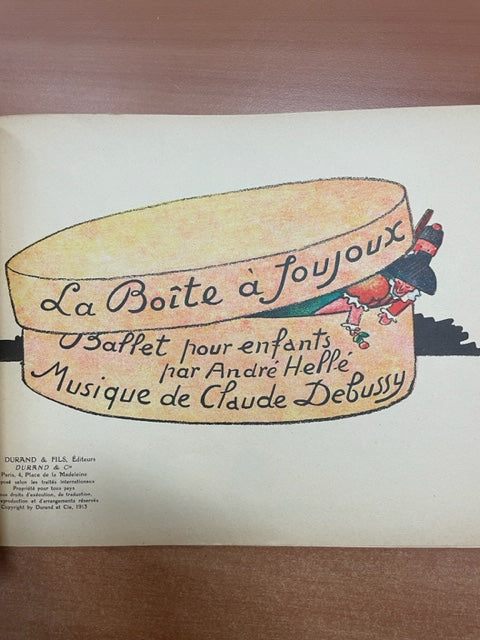 La Boîte à Joujoux
Ballet pour enfants
par André Hellé
Musique de Claude Debussy
DURAND & FILS, Éditeurs
DURAND & Cie
Paris, 4, Place de la Madeleine
selon les traités internationaux
Propriété pour tous pays
droits d'exécution, de traduction,
reproduction et d'arrangements réservés
Copyright by Durand et Cie, 1913